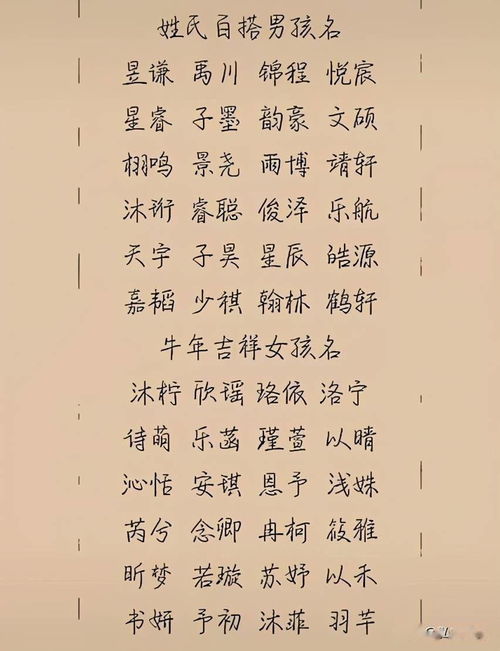 姓氏百搭男孩名
昱谦 禹川 锦程 悦宸
星睿 子墨 韵豪 文硕
栩鸣 景尧 雨博 靖轩
沐珩 睿聪 俊泽 乐航
天宇 子昊 星辰 皓源
嘉韬 少祺 翰林 鹤轩
牛年吉祥女孩名
沐柠 欣瑶 珞依 洛宁
诗萌 乐菡 瑾萱 以晴
沁恬 安琪 恩予 浅姝
芮兮 念卿 冉柯 筱雅
昕梦 若璇 苏妤 以禾
书妍 予初 沐菲 羽芊